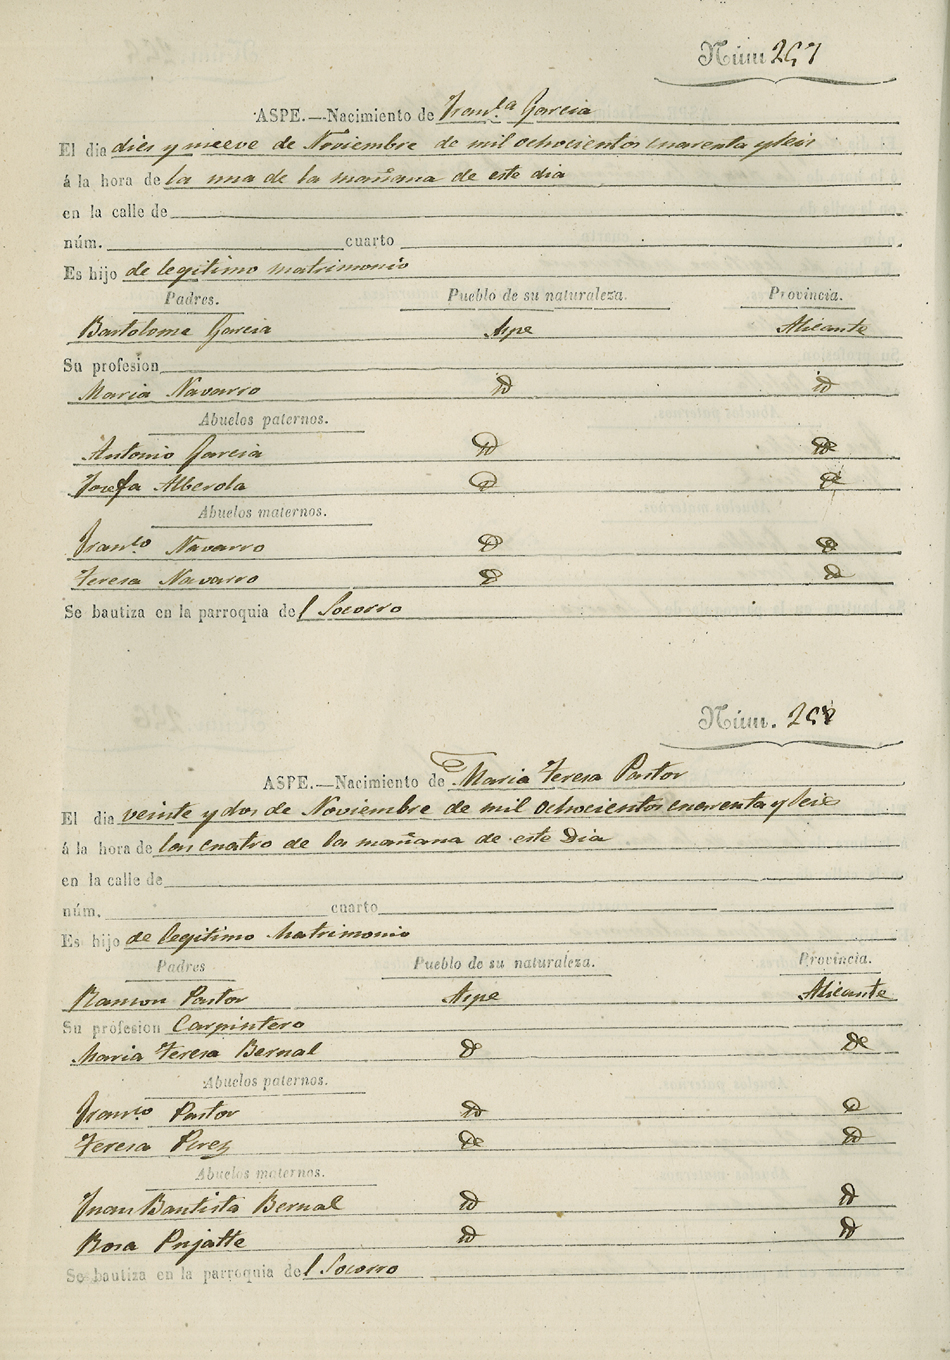 Núm 257
ASPE.—Nacimiento de Fran.ca Garcia
El dia dies y nueve de Noviembre de mil ochocientos cuarenta y seis
á la hora de la una de la mañana de este dia
en la calle de
núm. cuarto
Es hijo de legitimo matrimonio
Padres. Pueblo de su naturaleza. Provincia.
Bartolome Garcia Aspe Alicante
Su profesion
Maria Navarro id id
Abuelos paternos.
Antonio Garcia id id
Josefa Alberola id id
Abuelos maternos.
Fran.co Navarro id id
Teresa Navarro id id
Se bautiza en la parroquia del Socorro
Núm. 258
ASPE.—Nacimiento de Maria Teresa Pastor
El dia veinte y dos de Noviembre de mil ochocientos cuarenta y seis
á la hora de las cuatro de la mañana de este Dia
en la calle de
núm. cuarto
Es hijo de legitimo Matrimonio
Padres Pueblo de su naturaleza. Provincia.
Ramon Pastor Aspe Alicante
Su profesion Carpintero
Maria Teresa Bernal id id
Abuelos paternos.
Fran.co Pastor id id
Teresa Perez id id
Abuelos maternos.
Juan Bautista Bernal id id
Rosa Pujalte id id
Se bautiza en la parroquia del Socorro